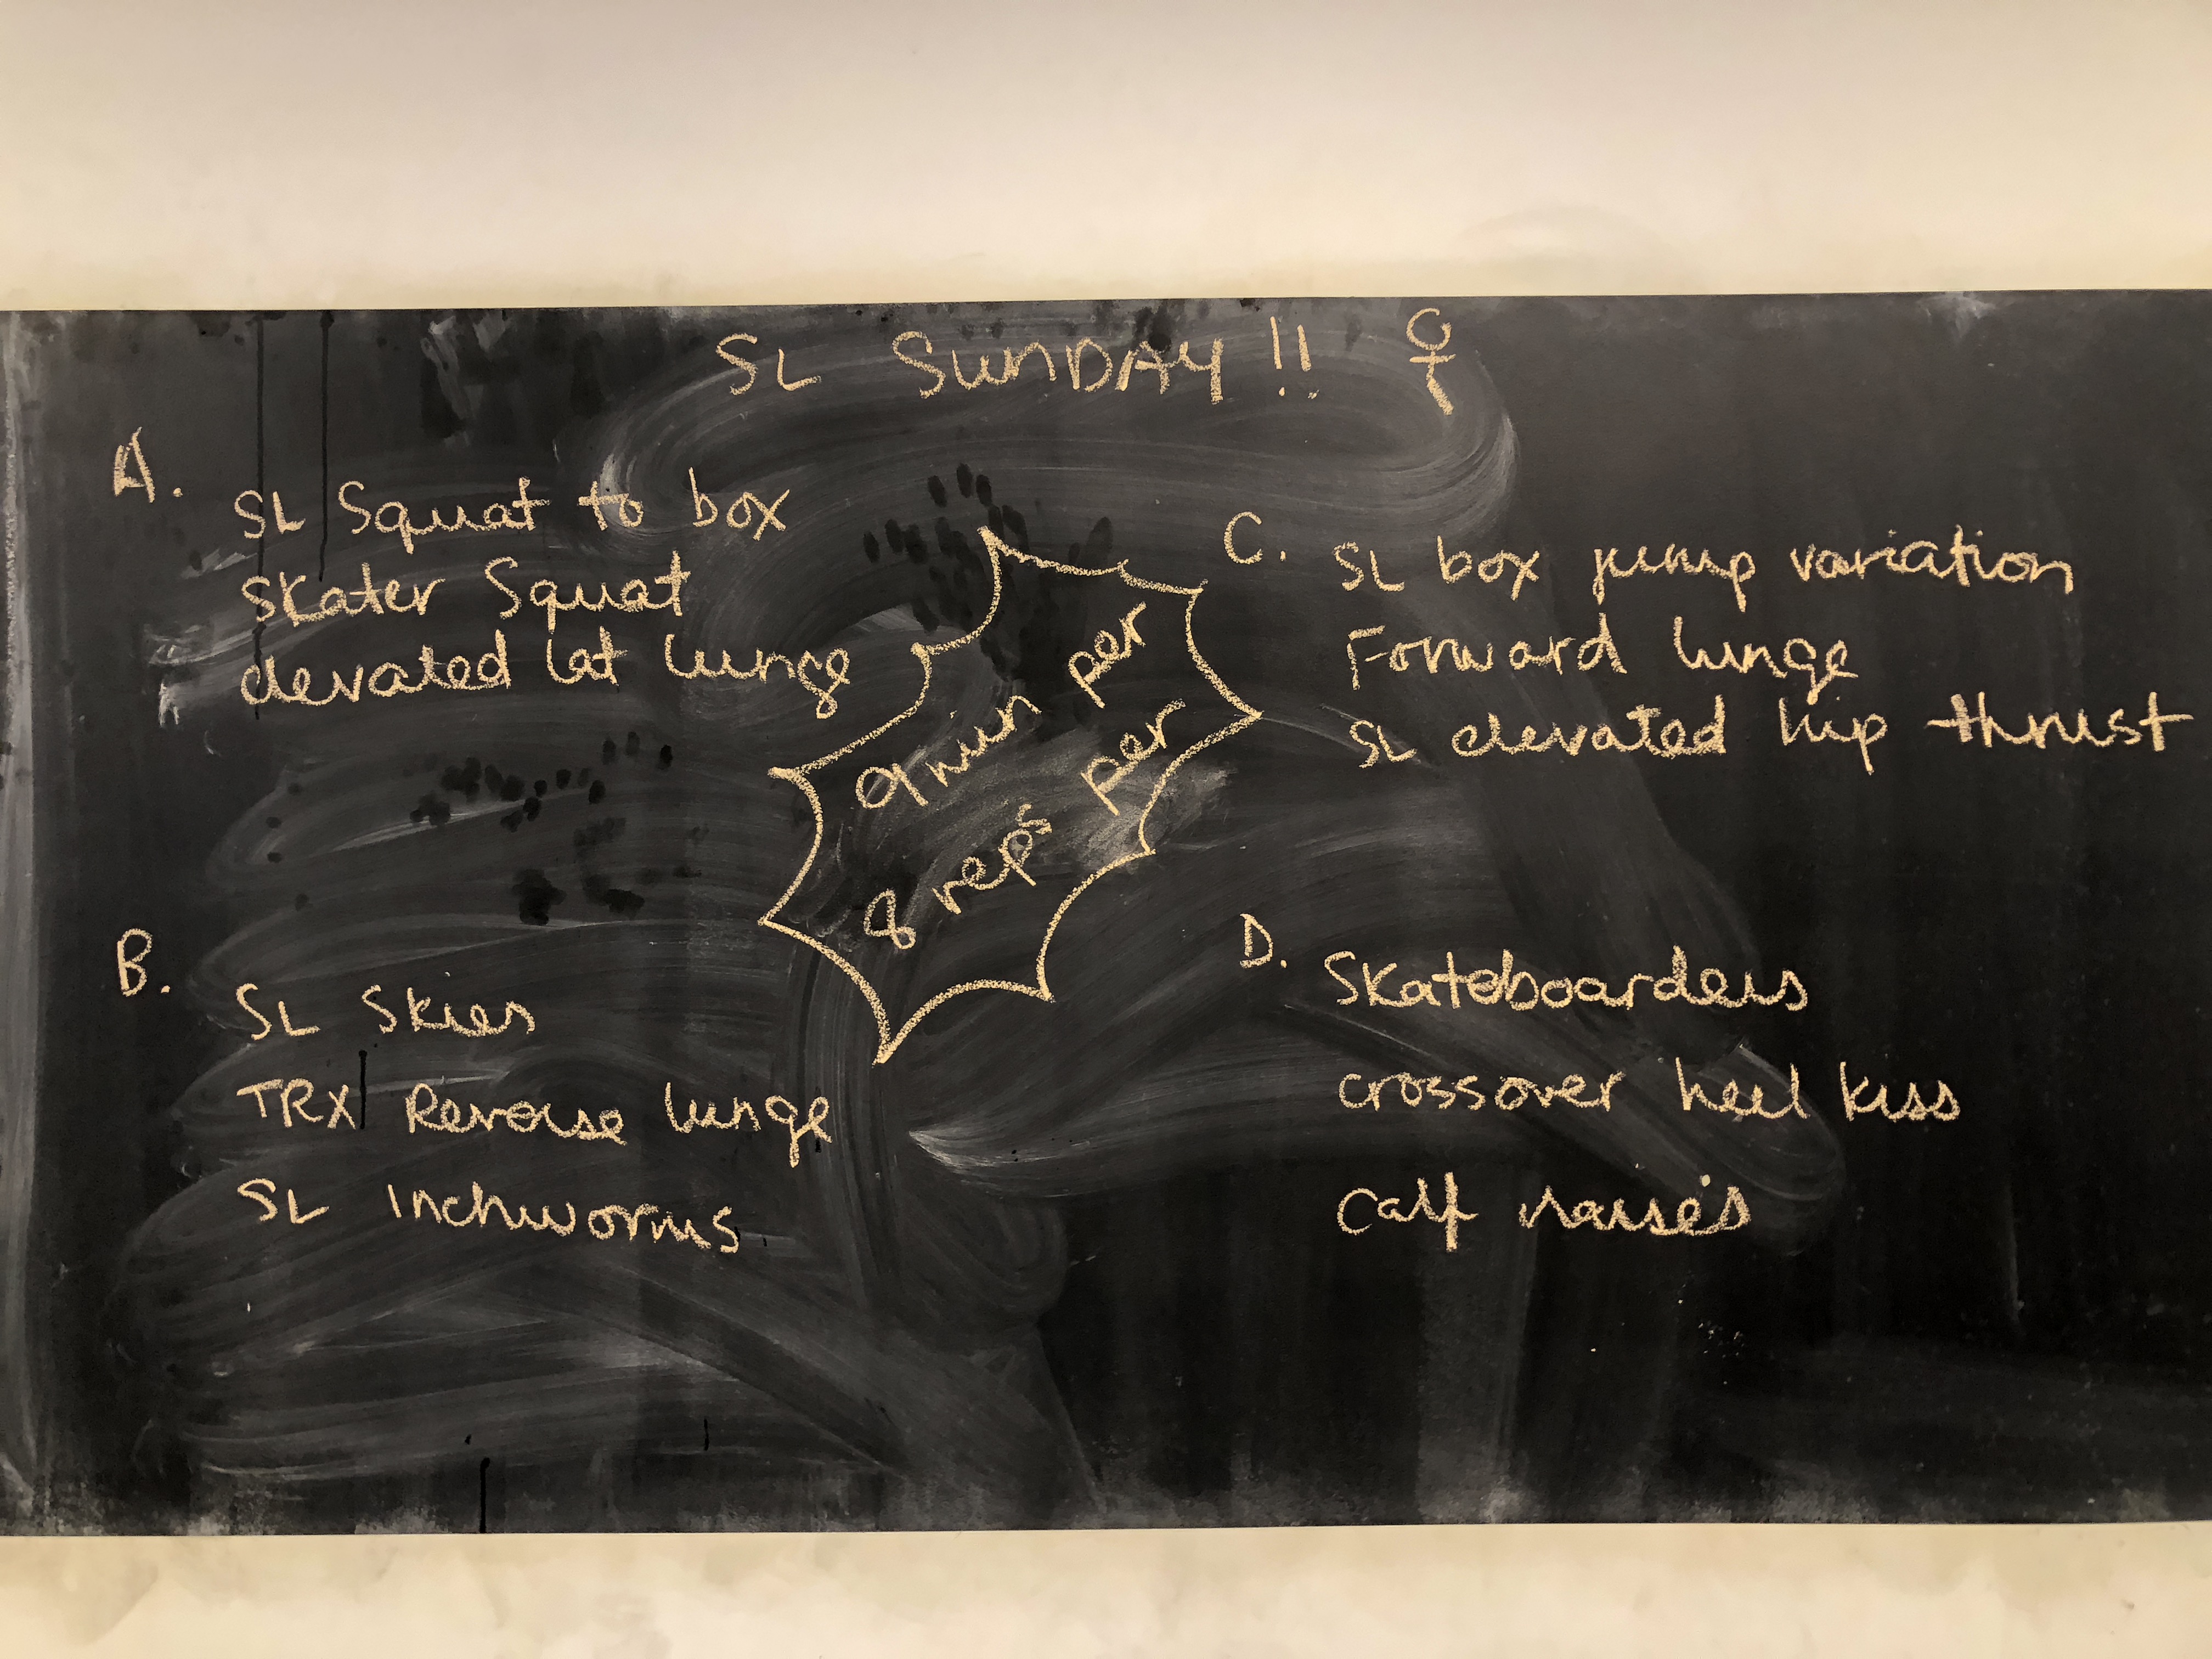 SL SUNDAY!!
A.
SL Squat to box
Skater Squat
elevated lat lunge
B.
SL Skies
TRX Reverse lunge
SL Inchworms
9 min per
8 reps per
C.
SL box jump variation
Forward lunge
SL elevated hip thrust
D.
Skateboarders
crossover heel kiss
calf raises